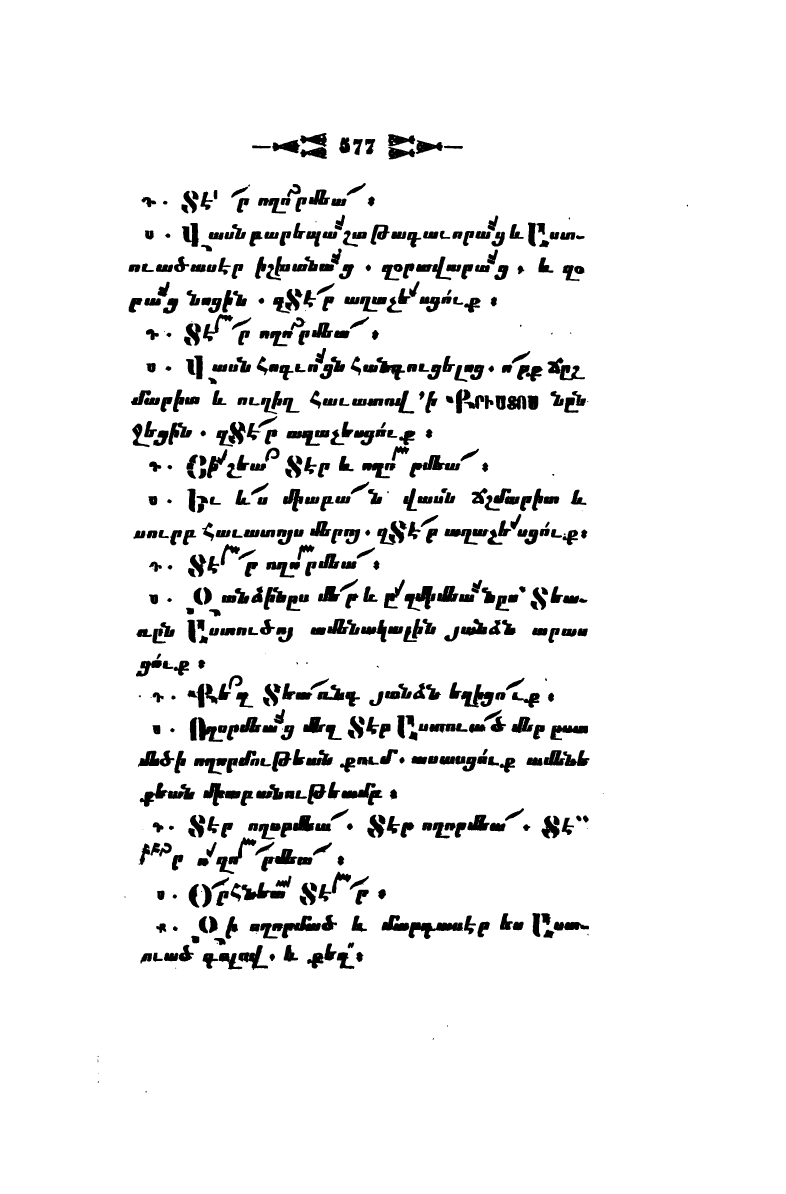 577
դ. Տէ՛ր ողո՛րմեա՛։
ս. Վասն բարեպաշտ թագաւորաց և Աստ-
ուածասէր իշխանաց, զօրավարաց, և զօ
րաց նոցին, զՏէ՛ր աղաչեսցուք։
դ. Տէ՛ր ողո՛րմեա՛։
ս. Վասն հոգւոցն հանգուցելոց, ո՛րք ճըշ
մարիտ և ուղիղ հաւատով ՚ի ՔՐԻՍՏՈՍ նըն
ջեցին, զՏէ՛ր աղաչեսցուք։
դ. Յիշեա՛ Տէր և ողո՛րմեա՛։
ս. Եւ ևս միաբան վասն ճշմարիտ և
սուրբ հաւատոյս մերոյ, զՏէ՛ր աղաչեսցուք։
դ. Տէ՛ր ողո՛րմեա՛։
ս. Զանձինըս մեր և զմիմեանըս՝ Տեա-
ռըն Աստուծոյ ամենակալին յանձն արաս
ցուք։
դ. Քեզ Տեառնդ յանձն եղիցուք։
ս. Ողորմեաց մեզ Տէր Աստուած մեր ըստ
մեծի ողորմութեան քում, ասասցուք ամենե
քեան միաբանութեամբ։
դ. Տէր ողորմեա՛, Տէր ողորմեա՛, Տէ
ր ողո՛րմեա՛։
ս. Օրհնեա Տէ՛ր։
ք. Զի ողորմած և մարդասէր ես Աստ-
ուած գոլով, և քեզ՛։